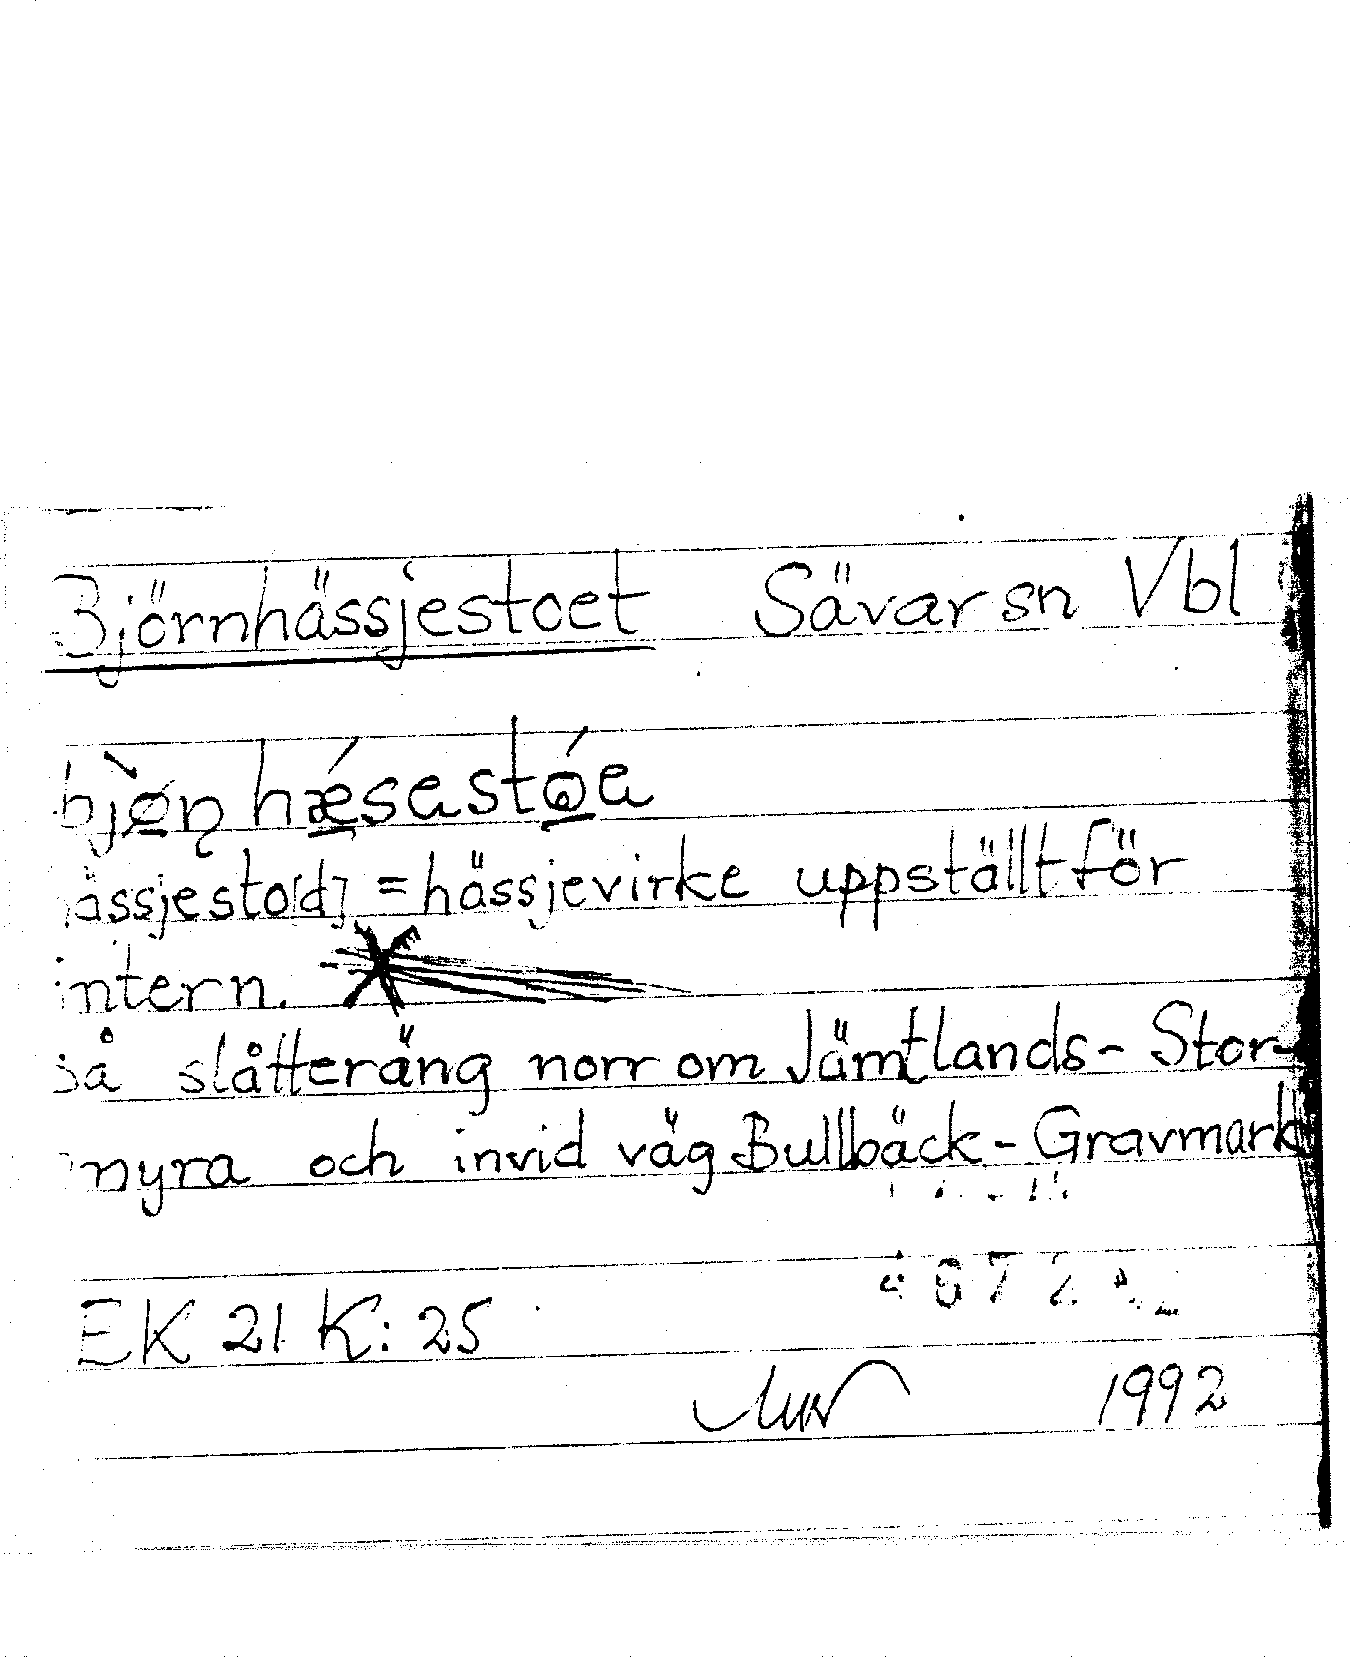 Björnhässjestoet Sävar sn Vbl
bjø̀ṇhǽsastóa
hässjesto[d], =hässjevirke uppställt för
intern.
så slåtteräng norr om Jämtlands-Stor-
myra och invid väg Bullbäck-Gravmark
EK 21 K: 25
1992